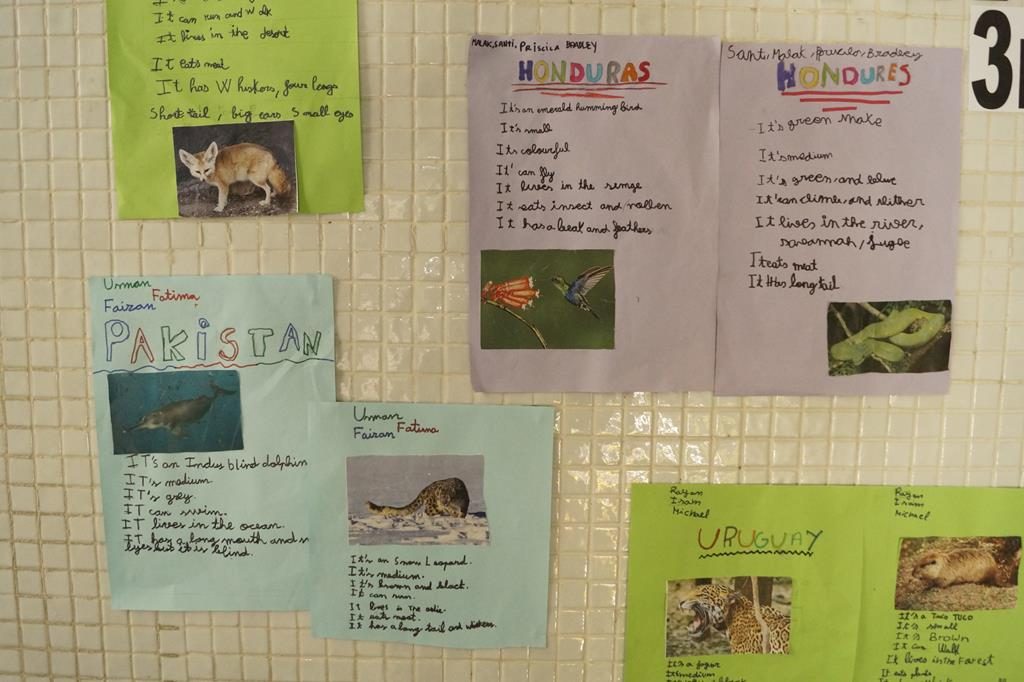 It can run and walk
It lives in the desert
It eats meat
It has Whiskers, four legs
Short tail, big ears Small eyes
MALAK, SANTI, PRISCILA BRADLEY
HONDURAS
It's an emerald humming bird
It's small
Its colourful
It' can fly
It lives in the
It eats insect and
It has a beak and feathers
Santi, Malak, Bradley
HONDURES
It's green snake
It's medium
It's green, and
It's can climb, and slither
It lives in the river,
savannah,
It eats meat
It Has long tail
3
Usman
Fatima
Faizan
PAKISTAN
IT's an Indus blind dolphin
IT's medium.
IT's grey.
IT can swim.
IT lives in the ocean.
IT has a long mouth and
eyes but it is blind.
Usman
Fatima
Faizan
It's an Snow Leopard.
It's medium.
It's brown and black.
It can run.
It lives in the
It eats meat.
It has a long tail and
Rayan
Isam
Michael
URUGUAY
It's a
It medium
black
Rayan
Isam
Michael
It's a TUCO TUCO
It's small
It is Brown
It can Walk
It lives in the Forest
It eats plants